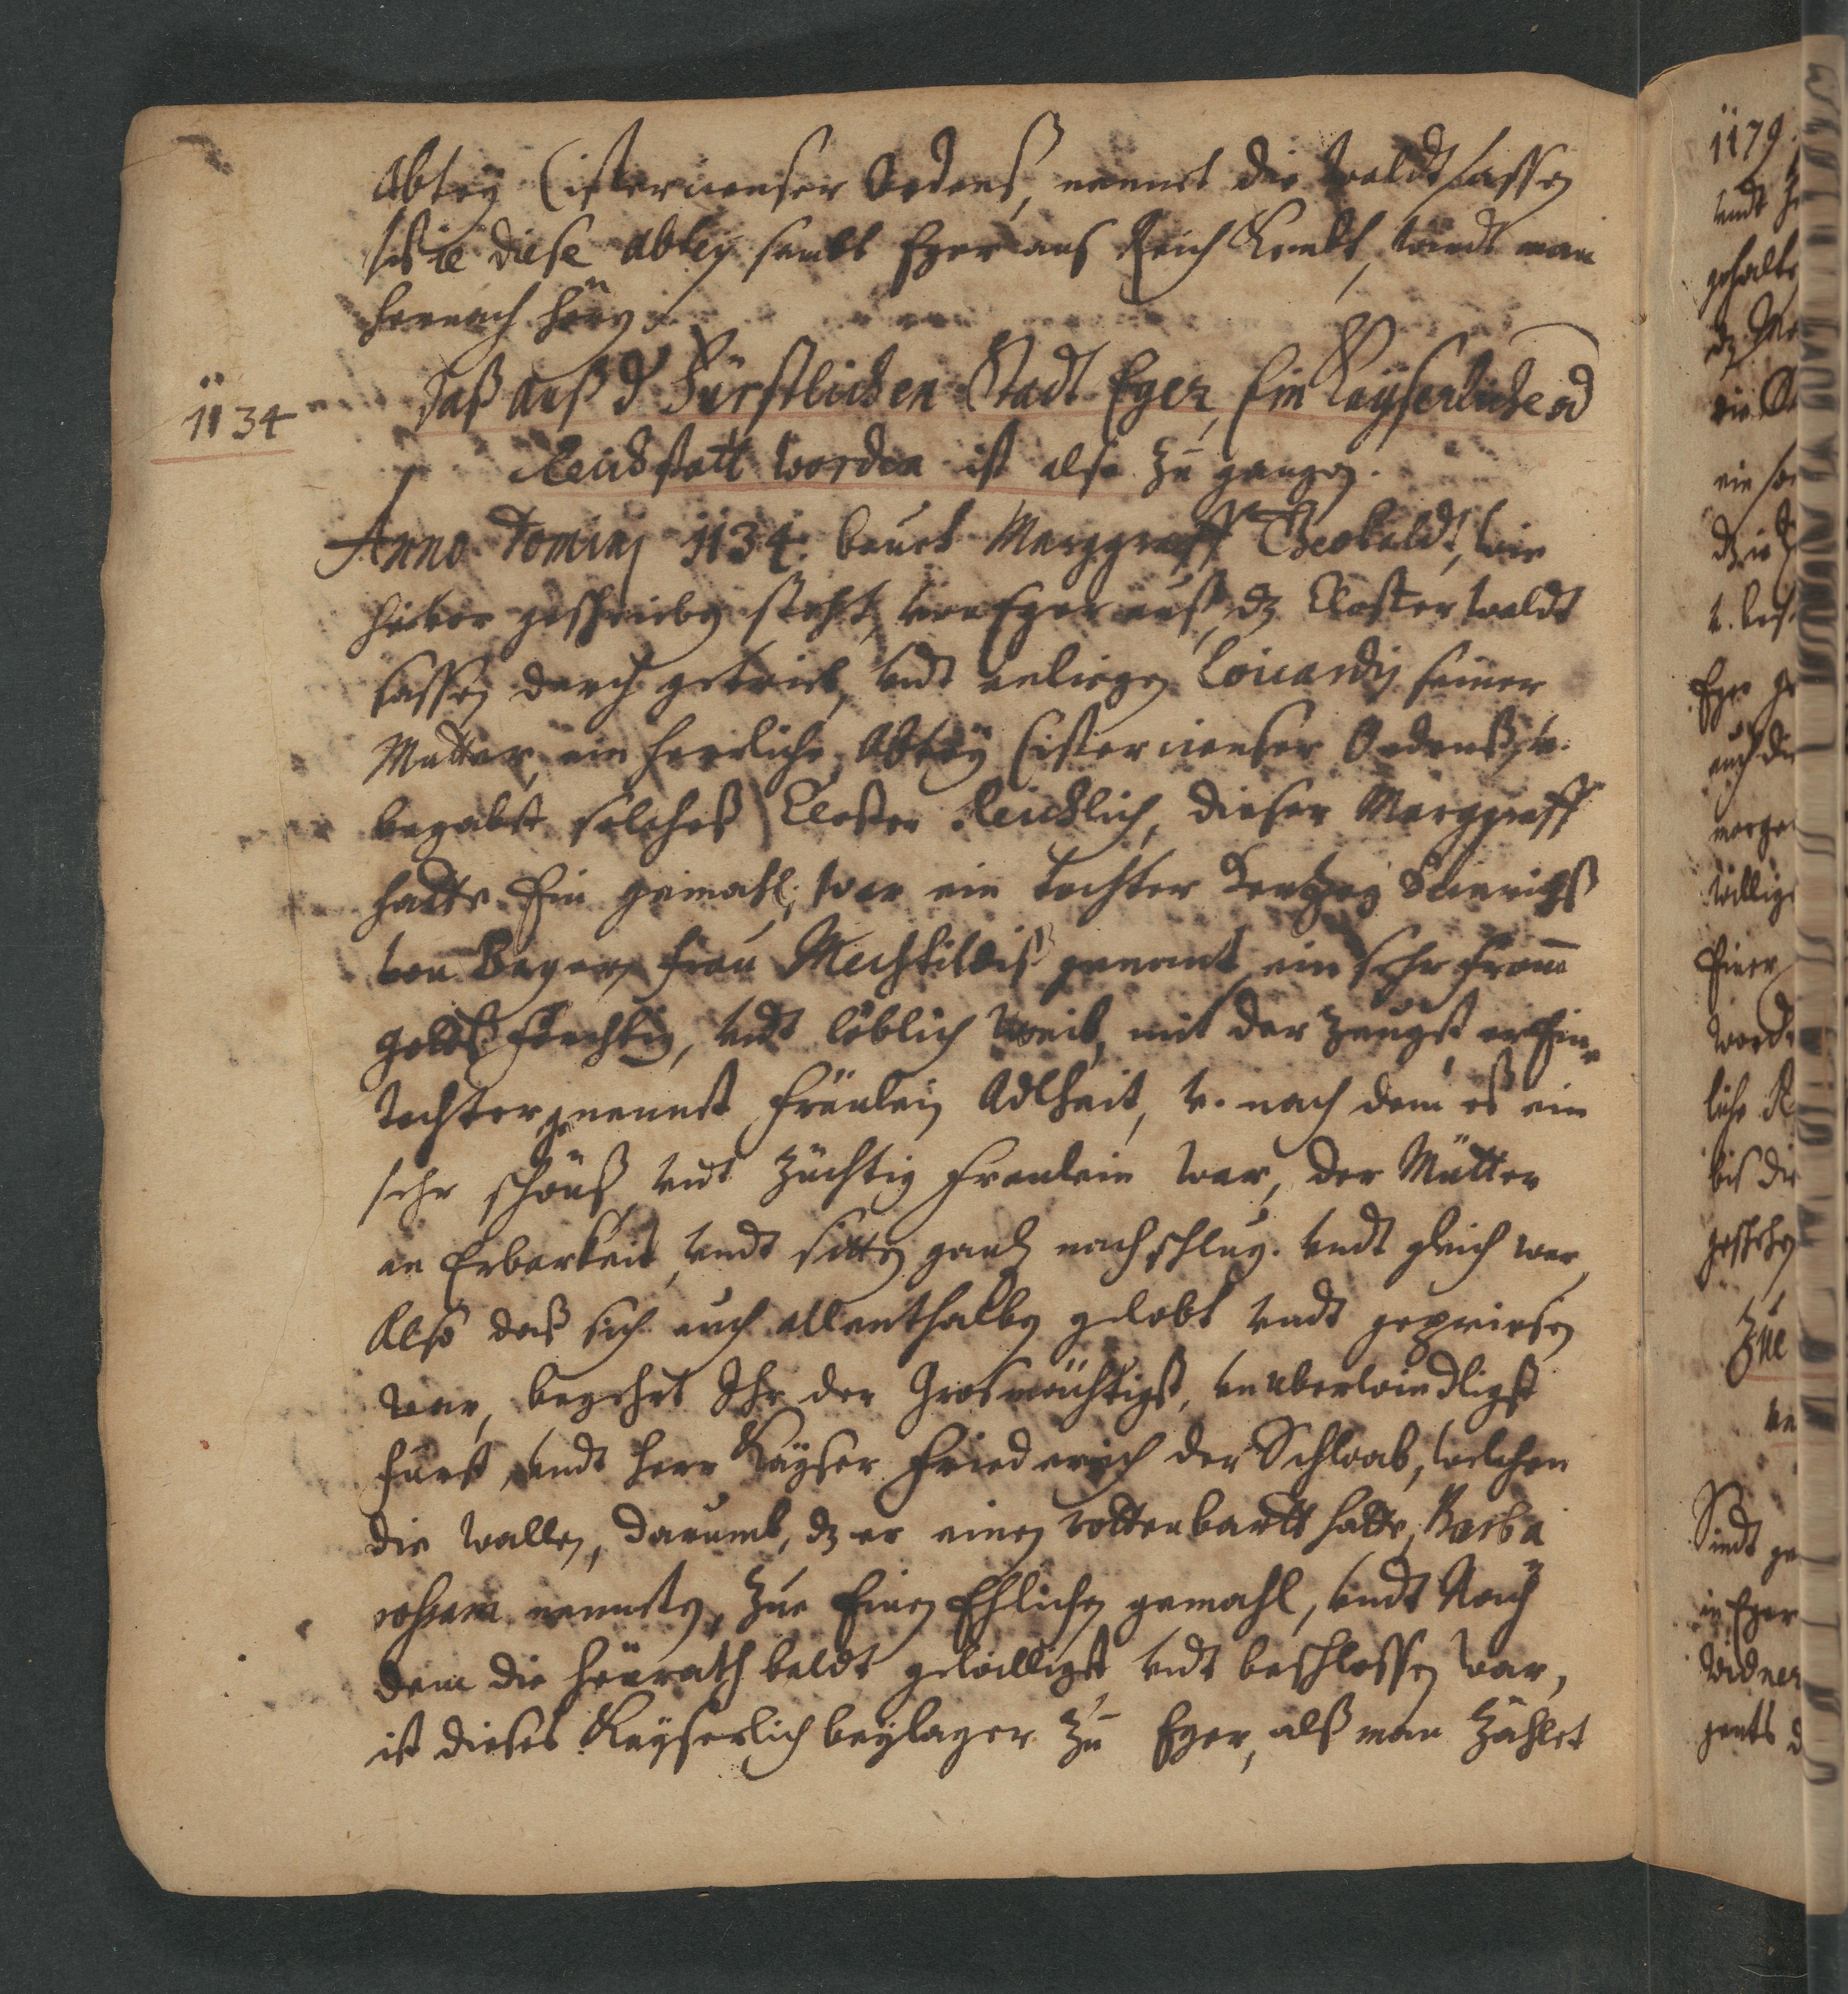 Abtey Cisterncienser Ordens, nennet die Waldtsassen
wie diese Abtey sambt Eger ans Reich kombt, wirdt man
hernach hörn.
1134
Daß auß d Fürstlichen Stadt Eger, Ein Kayserliche od
Reichstatt worden ist also zu gangen.
Anno Dominj 1134. bauet Marggraff Theobaldt, wie
hievor geschrieben steht, von Eger auß, dz Closter Waldt
sassen durch getrieb, vndt anliegen seiner
Mutter, ein herrliche Abtey Cisterncienser Ordenß, v.
begabet solcheß Closter Reichlich, dieser Marggraff
hatte Ein gemahl, war ein tochter Hertzog Heinrichß
von Bayern, frau Mechtildiß genant, ein sehr from
gotts förchtig, vndt löblich Weib, mit der zeuget er Eine
tochter genennet Fräulein Adlheit, v. nach dem eß ein
sehr schönß vndt züchtig Freulein war, der Mutter
an Erbarkeit, vndt sitten gantz nachschlug. vndt gleich war,
Also daß sich auch allenthalben gelobt vndt gepriesen
war, begehrt Ihr der Grosmächtigst, vnuberwindligst
Fürst, vndt Herr Kayser Friederich der Schwab, welchen
die Wallen, darumb, dz er einen rotten bartt hatte, Barba
rossam nenneten, Zue Einen Ehlichen gemahl, vndt Nach
dem die heurath baldt gewilliget vndt beschlossen war,
ist dieses Kayserlich beylager zu Eger, alß man Zählet
1179.
vndt
gehalten
Eger
auch die
Einer
worde
bis die
geschehen
Zue
Sindt
in Eger